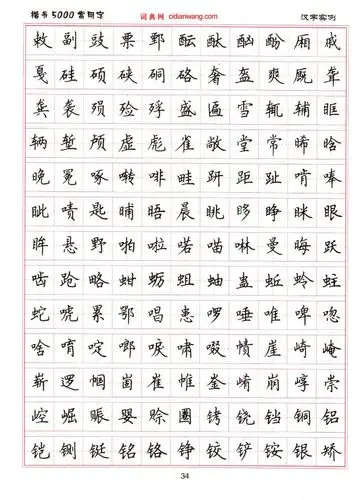 楷书5000常用字 词典网 cidianwang.com 汉字实例
敕副豉票鄄酝酞酗酚厢戚
戛硅硕硖硐硌奢盔爽厩聋
龚袭殒殓殍盛匾雪辄辅辊
辆堑颅虚彪雀敞堂常晞晗
晚冕啄啭啡畦趼距趾啃唪
眦啧匙晡晤晨眺眵睁眯眼
眸悬野啪啦喏喵啉曼晦跃
啮跄略蚶蛎蛆蚰蛊蚯蛉蛀
蛇唬累鄂唱患啰唾唯啤啖
啥唷啶啷唳啸啜帻崖崎崦
崭逻帼崮崔帷崟崤崩崞崇
崆崛赈婴赊圈铐铙铛铜铝
铠铡铤铭铬铮铰铵银矫
34